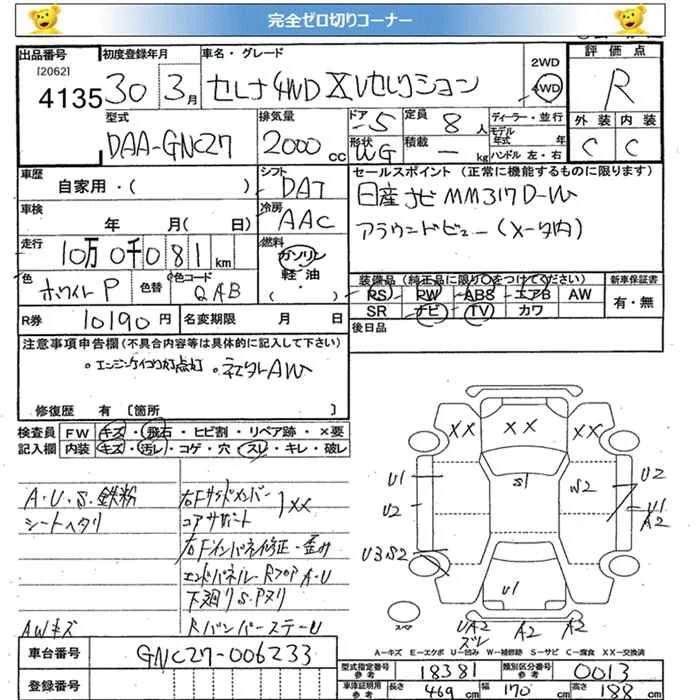 完全ゼロ切りコーナー
出品番号 初度登録年月 車名・グレード 2WD 評価点
[2062]
4135 30 3月 セレナ4WD XVセレクション 4WD R
型式 排気量 ドア 5 定員 8人 ディーラー・並行 外装 内装
DAA-GNC27 2000cc 形状 WG 積載 — kg モデル年式 年 C C
ハンドル 左・右
車歴 シフト セールスポイント (正常に機能するものに限ります)
自家用・( ) DAT 日産ナビ MM317D-W
車検 冷房 アラウンドビュー(メータ内)
年 月( 日) AAC
走行 10万0千081km 燃料 ガソリン
軽油
( )
色 ホワイトP 色替 色コード QAB
装備品 (純正品に限り○をつけてください) 新車保証書
RS RW ABS エアB AW 有・無
SR ナビ TV カワ
R券 10190円 名変期限 月 日 後日品
注意事項申告欄 (不具合内容等は具体的に記入して下さい)
。エンジンチェック灯点灯 。社外AW
修復歴 有 [箇所 ]
検査員 FW キズ・飛石・ヒビ割・リペア跡・×要
記入欄 内装 キズ・汚レ・コゲ・穴・スレ・キレ・破レ
A・U・S・鉄粉 右Fサイドメンバー
シートヘタリ コアサポート XX
右Fインパネ修正・歪み
エンドパネル RフロアA・U
下廻りS・Pヌリ
AWキズ RバンパーステーU
XX XX XX
U1 S1 S2 U2
U2 U1
A2
U3S2
U1
スペア UA2 A2 A2
ズレ
A-キズ E-エクボ U-凹み W-補修跡 S-サビ C-腐食 XX-交換済
車台番号 GNC27-006233
型式指定番号 参考 18381 類別区分番号 参考 0013
登録番号 車庫証明用 参考 長さ 469cm 幅 170cm 高さ 188cm